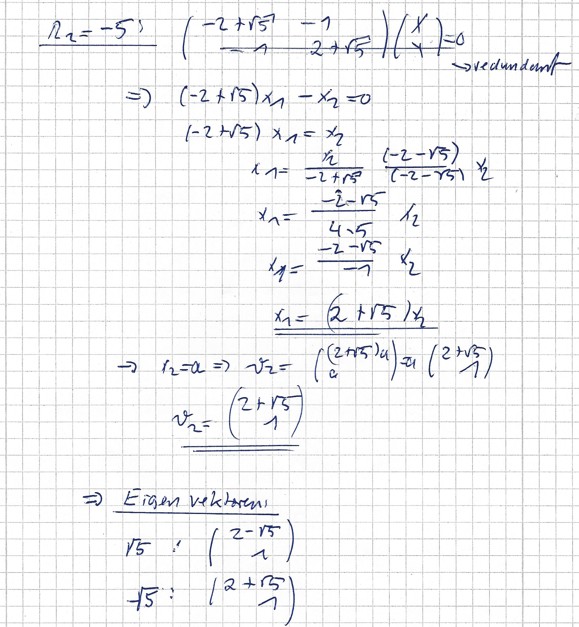 λ₂ = -5: ( -2+√5 -1 ; -1 2+√5 ) ( x ; x ) = 0
→ redundant
=> (-2+√5)x₁ - x₂ = 0
(-2+√5) x₁ = x₂
x₁ = x₂/(-2+√5) (-2-√5)/(-2-√5) x₂
x₁ = (-2-√5)/(4-5) x₂
x₁ = (-2-√5)/(-1) x₂
x₁ = (2+√5)x₂
→ x₂=a => v₂ = ( (2+√5)a ; a ) = a ( 2+√5 ; 1 )
v₂ = ( 2+√5 ; 1 )
=> Eigenvektoren:
√5 : ( 2-√5 ; 1 )
-√5 : ( 2+√5 ; 1 )